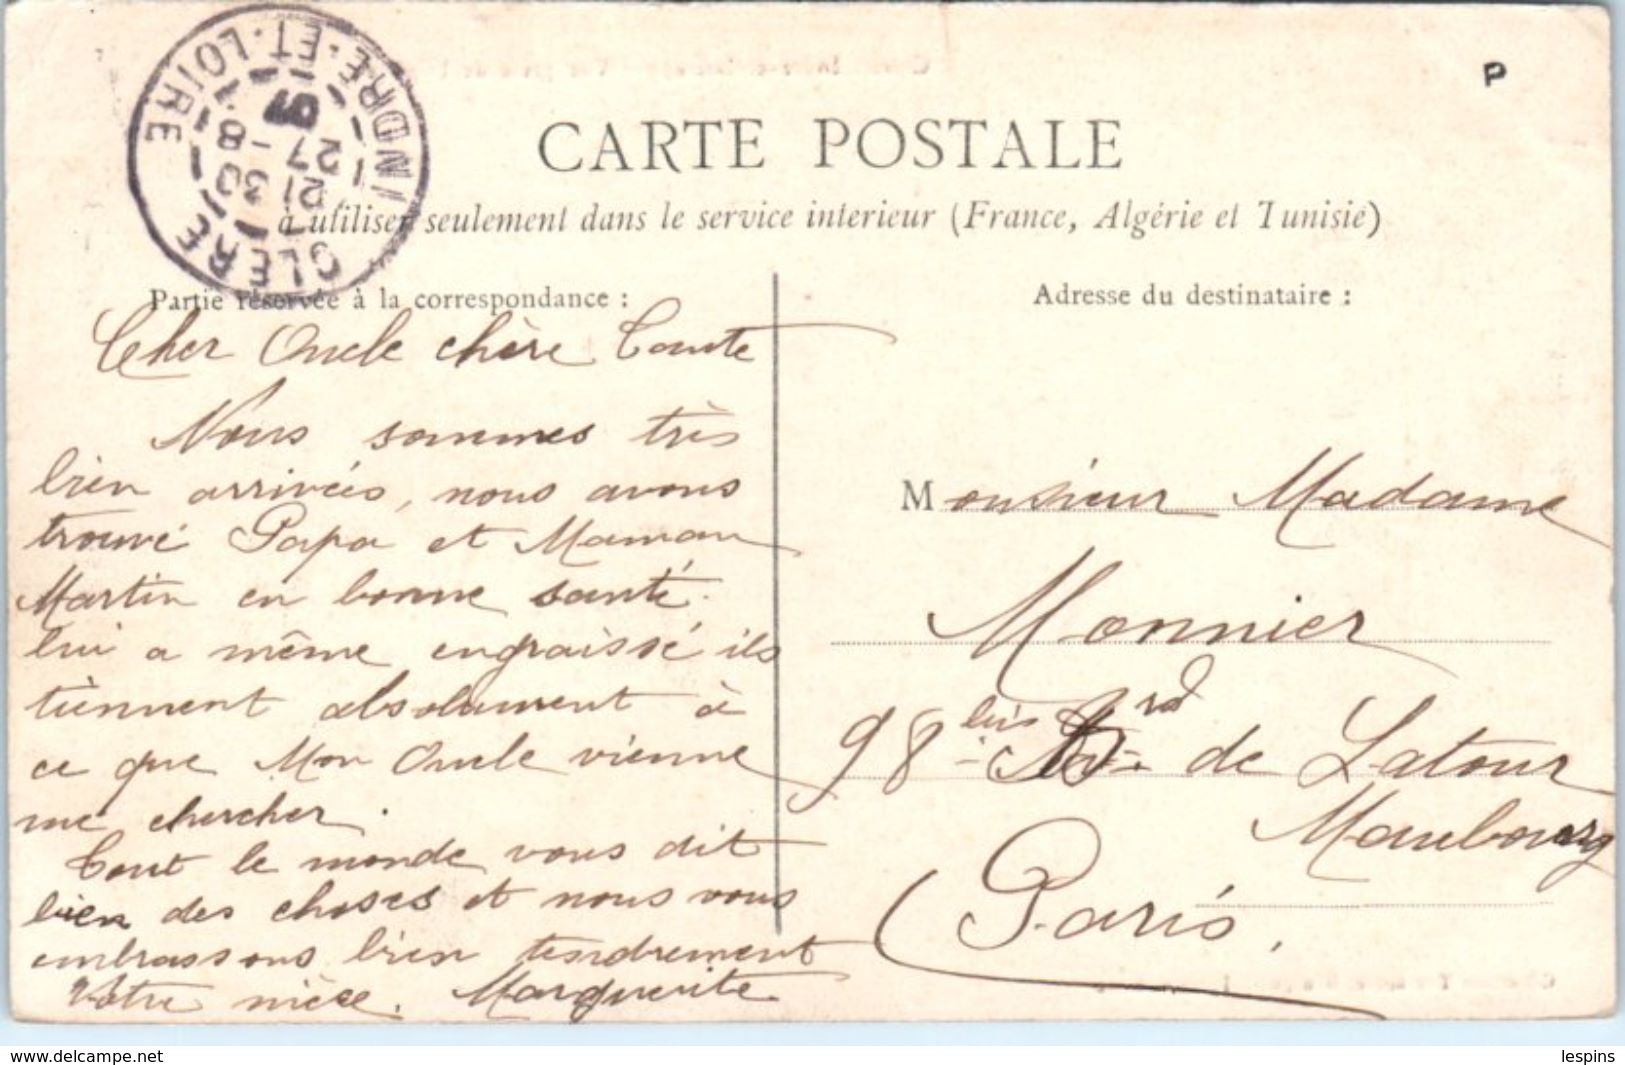 INDRE-ET-LOIRE
CLÉRÉ
21 30
27 - 8
P
CARTE POSTALE
à utiliser seulement dans le service intérieur (France, Algérie et Tunisie)
Partie réservée à la correspondance :
Cher Oncle chère Tante
Nous sommes très
bien arrivées, nous avons
trouvé Papa et Maman
Martin en bonne santé.
lui a même engraissé ils
tiennent absolument à
ce que Mon Oncle vienne
me chercher.
Tout le monde vous dit
bien des choses et nous vous
embrassons bien tendrement
Votre nièce. Marguerite
Adresse du destinataire :
Monsieur Madame
Monnier
98 bis Brd de Latour
Maubourg
Paris.
www.delcampe.net
lespins